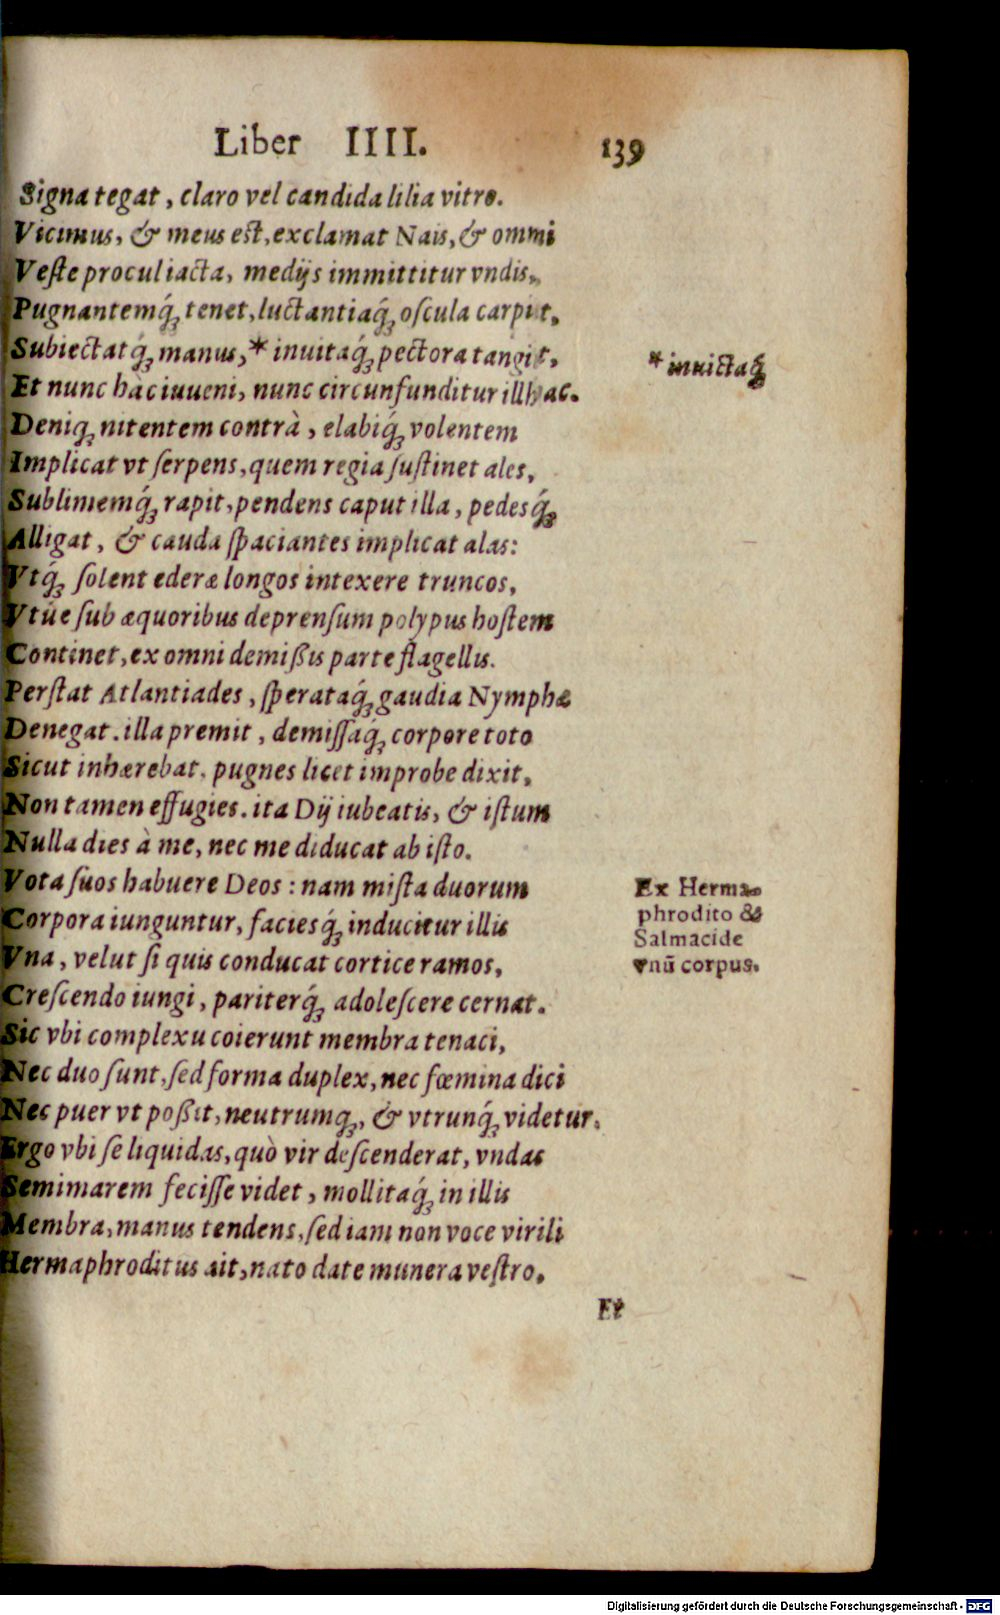 Liber IIII. 139
Signa tegat, claro vel candida lilia vitro.
Vicimus, & meus est, exclamat Nais, & omni
Veste procul iacta, medijs immittitur vndis,
Pugnantemq́ꝫ tenet, luctantiaq́ꝫ oscula carpit,
Subiectatq́ꝫ manus, * inuitaq́ꝫ pectora tangit,
* inuictaq́ꝫ
Et nunc hàc iuueni, nunc circunfunditur illhac.
Deniqꝫ nitentem contrà, elabiq́ꝫ volentem
Implicat vt serpens, quem regia sustinet ales,
Sublimemq́ꝫ rapit, pendens caput illa, pedesq́ꝫ
Alligat, & cauda spaciantes implicat alas:
Vtq́ꝫ solent ederæ longos intexere truncos,
Vtúe sub æquoribus deprensum polypus hostem
Continet, ex omni demißis parte flagellis.
Perstat Atlantiades, sperataq́ꝫ gaudia Nymphæ
Denegat. illa premit, demissaq́ꝫ corpore toto
Sicut inhærebat, pugnes licet improbe dixit,
Non tamen effugies. ita Dij iubeatis, & istum
Nulla dies à me, nec me diducat ab isto.
Vota suos habuere Deos: nam mista duorum
Corpora iunguntur, faciesq́ꝫ inducitur illis
Vna, velut si quis conducat cortice ramos,
Crescendo iungi, pariterq́ꝫ adolescere cernat.
Ex Herma-
phrodito &
Salmacide
vnū corpus.
Sic vbi complexu coierunt membra tenaci,
Nec duo sunt, sed forma duplex, nec fœmina dici
Nec puer vt poßit, neutrumqꝫ, & vtrunq́ꝫ videtur.
Ergo vbi se liquidas, quò vir descenderat, vndas
Semimarem fecisse videt, mollitaq́ꝫ in illis
Membra, manus tendens, sed iam non voce virili
Hermaphroditus ait, nato date munera vestro,
Et
Digitalisierung gefördert durch die Deutsche Forschungsgemeinschaft - DFG